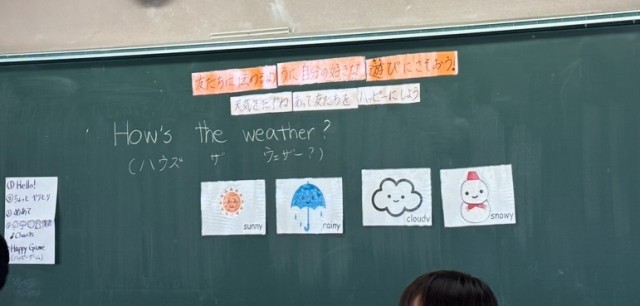 友だちに伝わるように自分の好きな遊びにさそおう。
天気をたずねあって友だちをハッピーにしよう
How's the weather?
(ハウズ ザ ウェザー?)
sunny
rainy
cloudy
snowy
① Hello!
② ちょっと やりとり
③ めあて
Chants
Happy Game
(ハッピーゲーム)